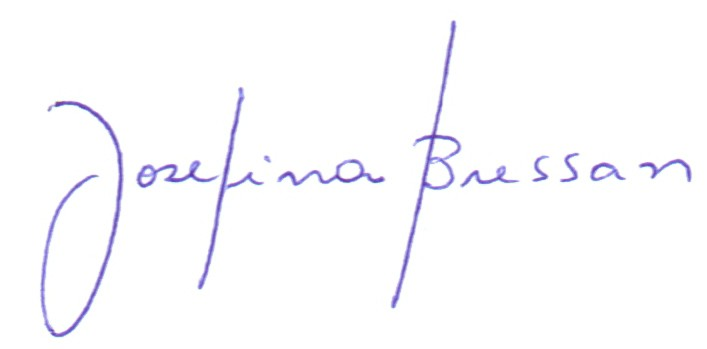 Josefina Bressan